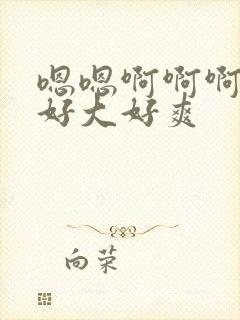 嗯嗯啊啊啊
好大好爽
向荣